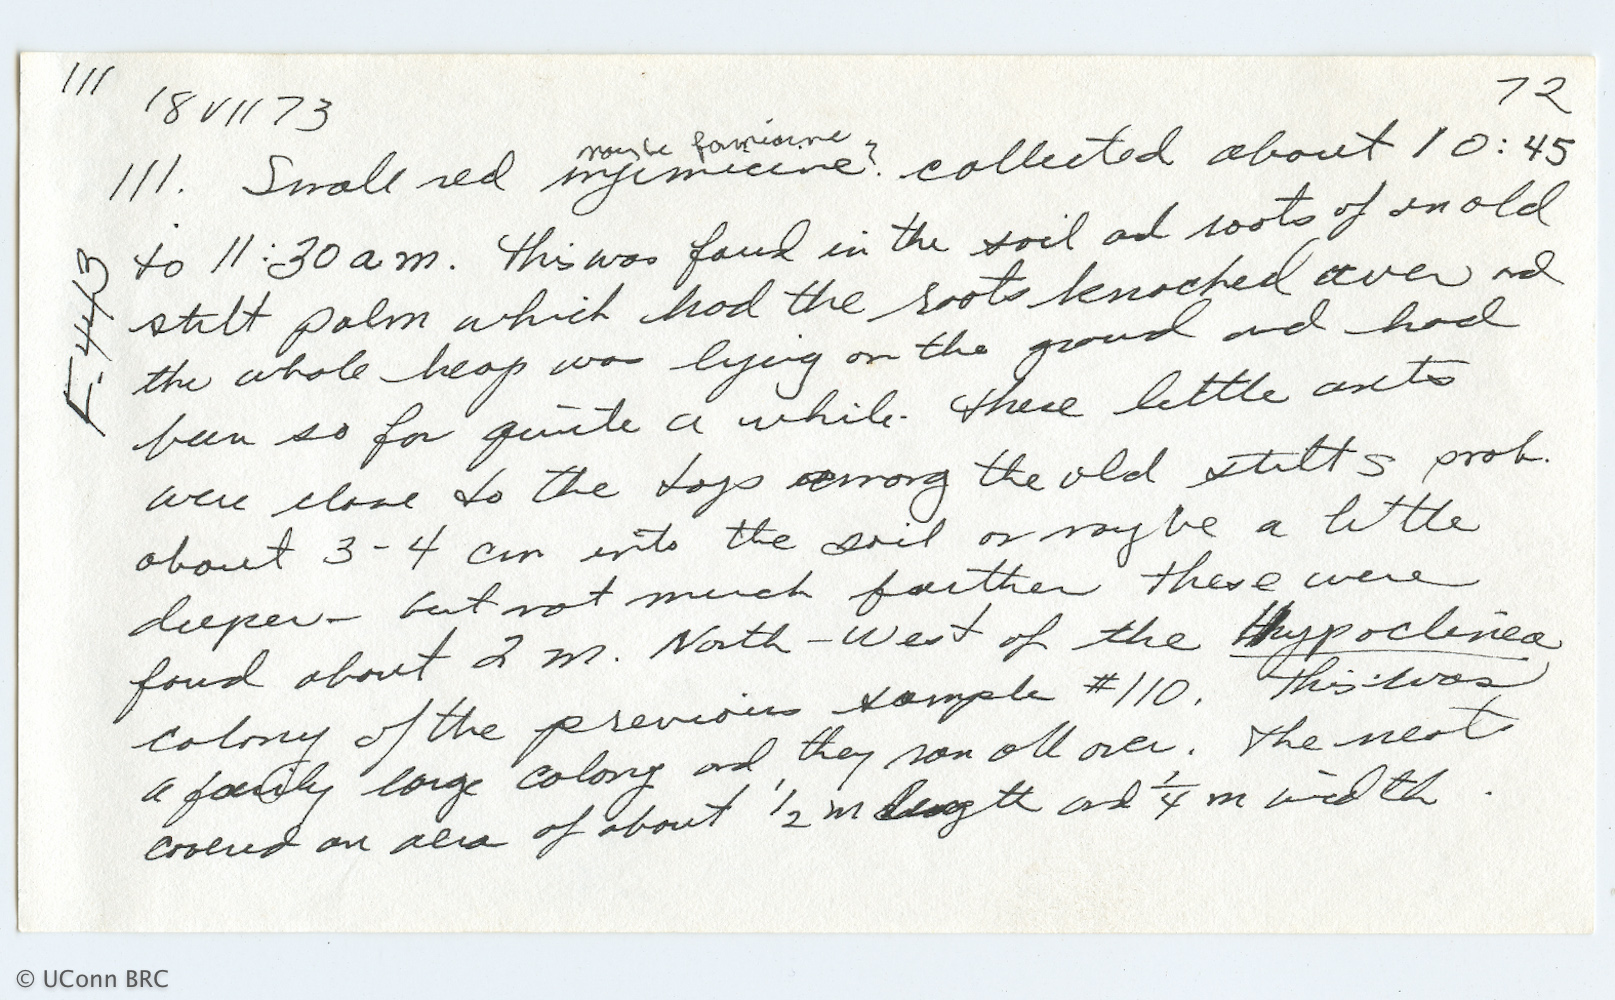 111
72
18 VII 73
maybe formicine
111. Small red myrmicine? collected about 10:45
to 11:30 am. This was found in the soil and roots of an old
stilt palm which had the roots knocked over and
the whole heap was lying on the ground and had
been so for quite a while. These little ants
were close to the tops among the old stilts prob.
about 3-4 cm into the soil or maybe a little
deeper - but not much farther these were
found about 2 m. North-West of the Hypoclinea
colony of the previous sample #110. This was
a fairly large colony and they ran all over. The nest
covered an area of about 1/2 m length and 1/4 m width.
F.443
© UConn BRC